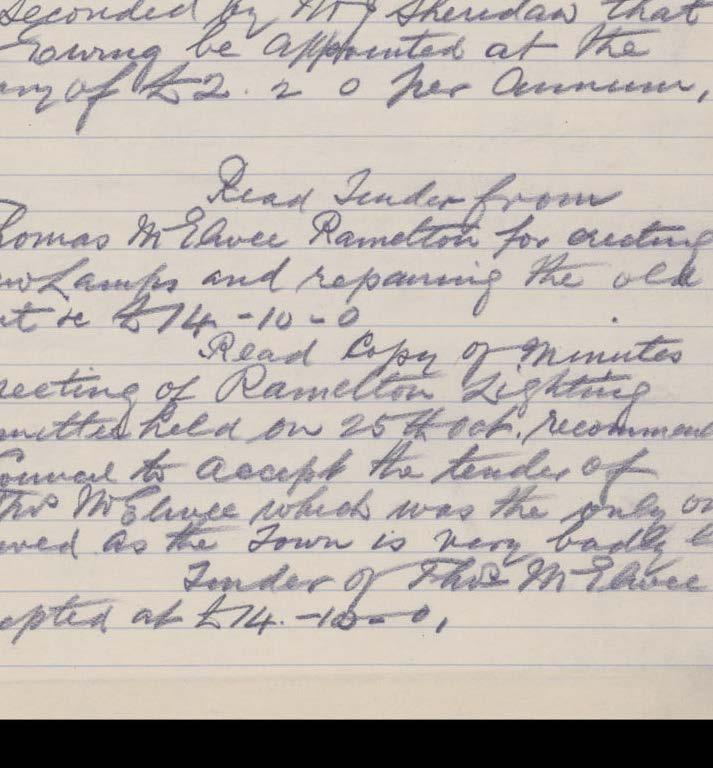 seconded by Mr J Sheridan that
Ewing be appointed at the
ary of £2. 2 0 per annum,
Read Tender from
homas McElwee Ramelton for erecting
ew Lamps and repairing the old
at &c £14 - 10 - 0
Read Copy of Minutes
eeting of Ramelton Lighting
mittee held on 25th Oct. recommend
Council to accept the tender of
Thos McElwee which was the only on
ived as the Town is very badly l
Tender of Thos McElwee
epted at £14. - 10 - 0,